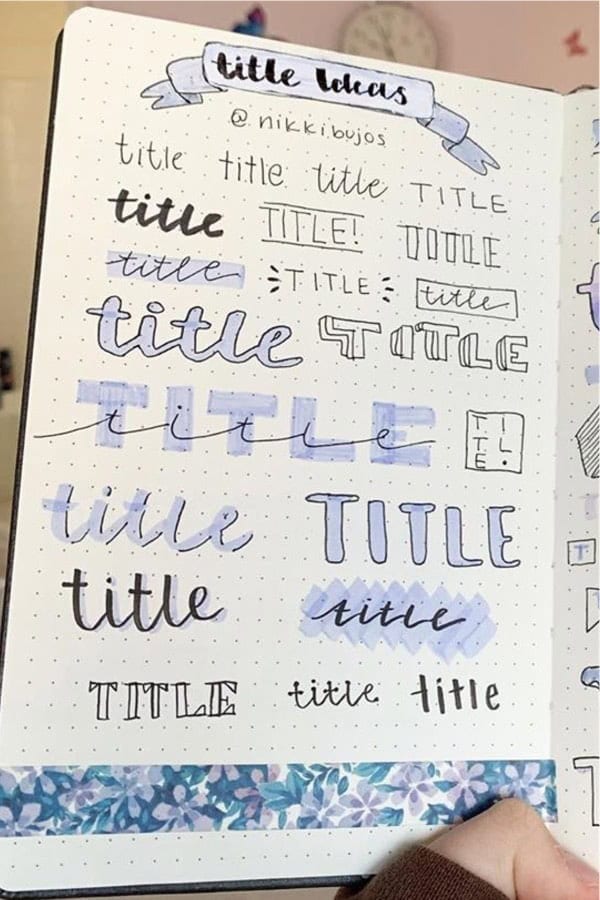 title Ideas
@nikkibujos
title title title TITLE
title TITLE! TITLE
title TITLE title
title TITLE
TITLE
title
TI
TL
E.
title TITLE
title title
TITLE title title